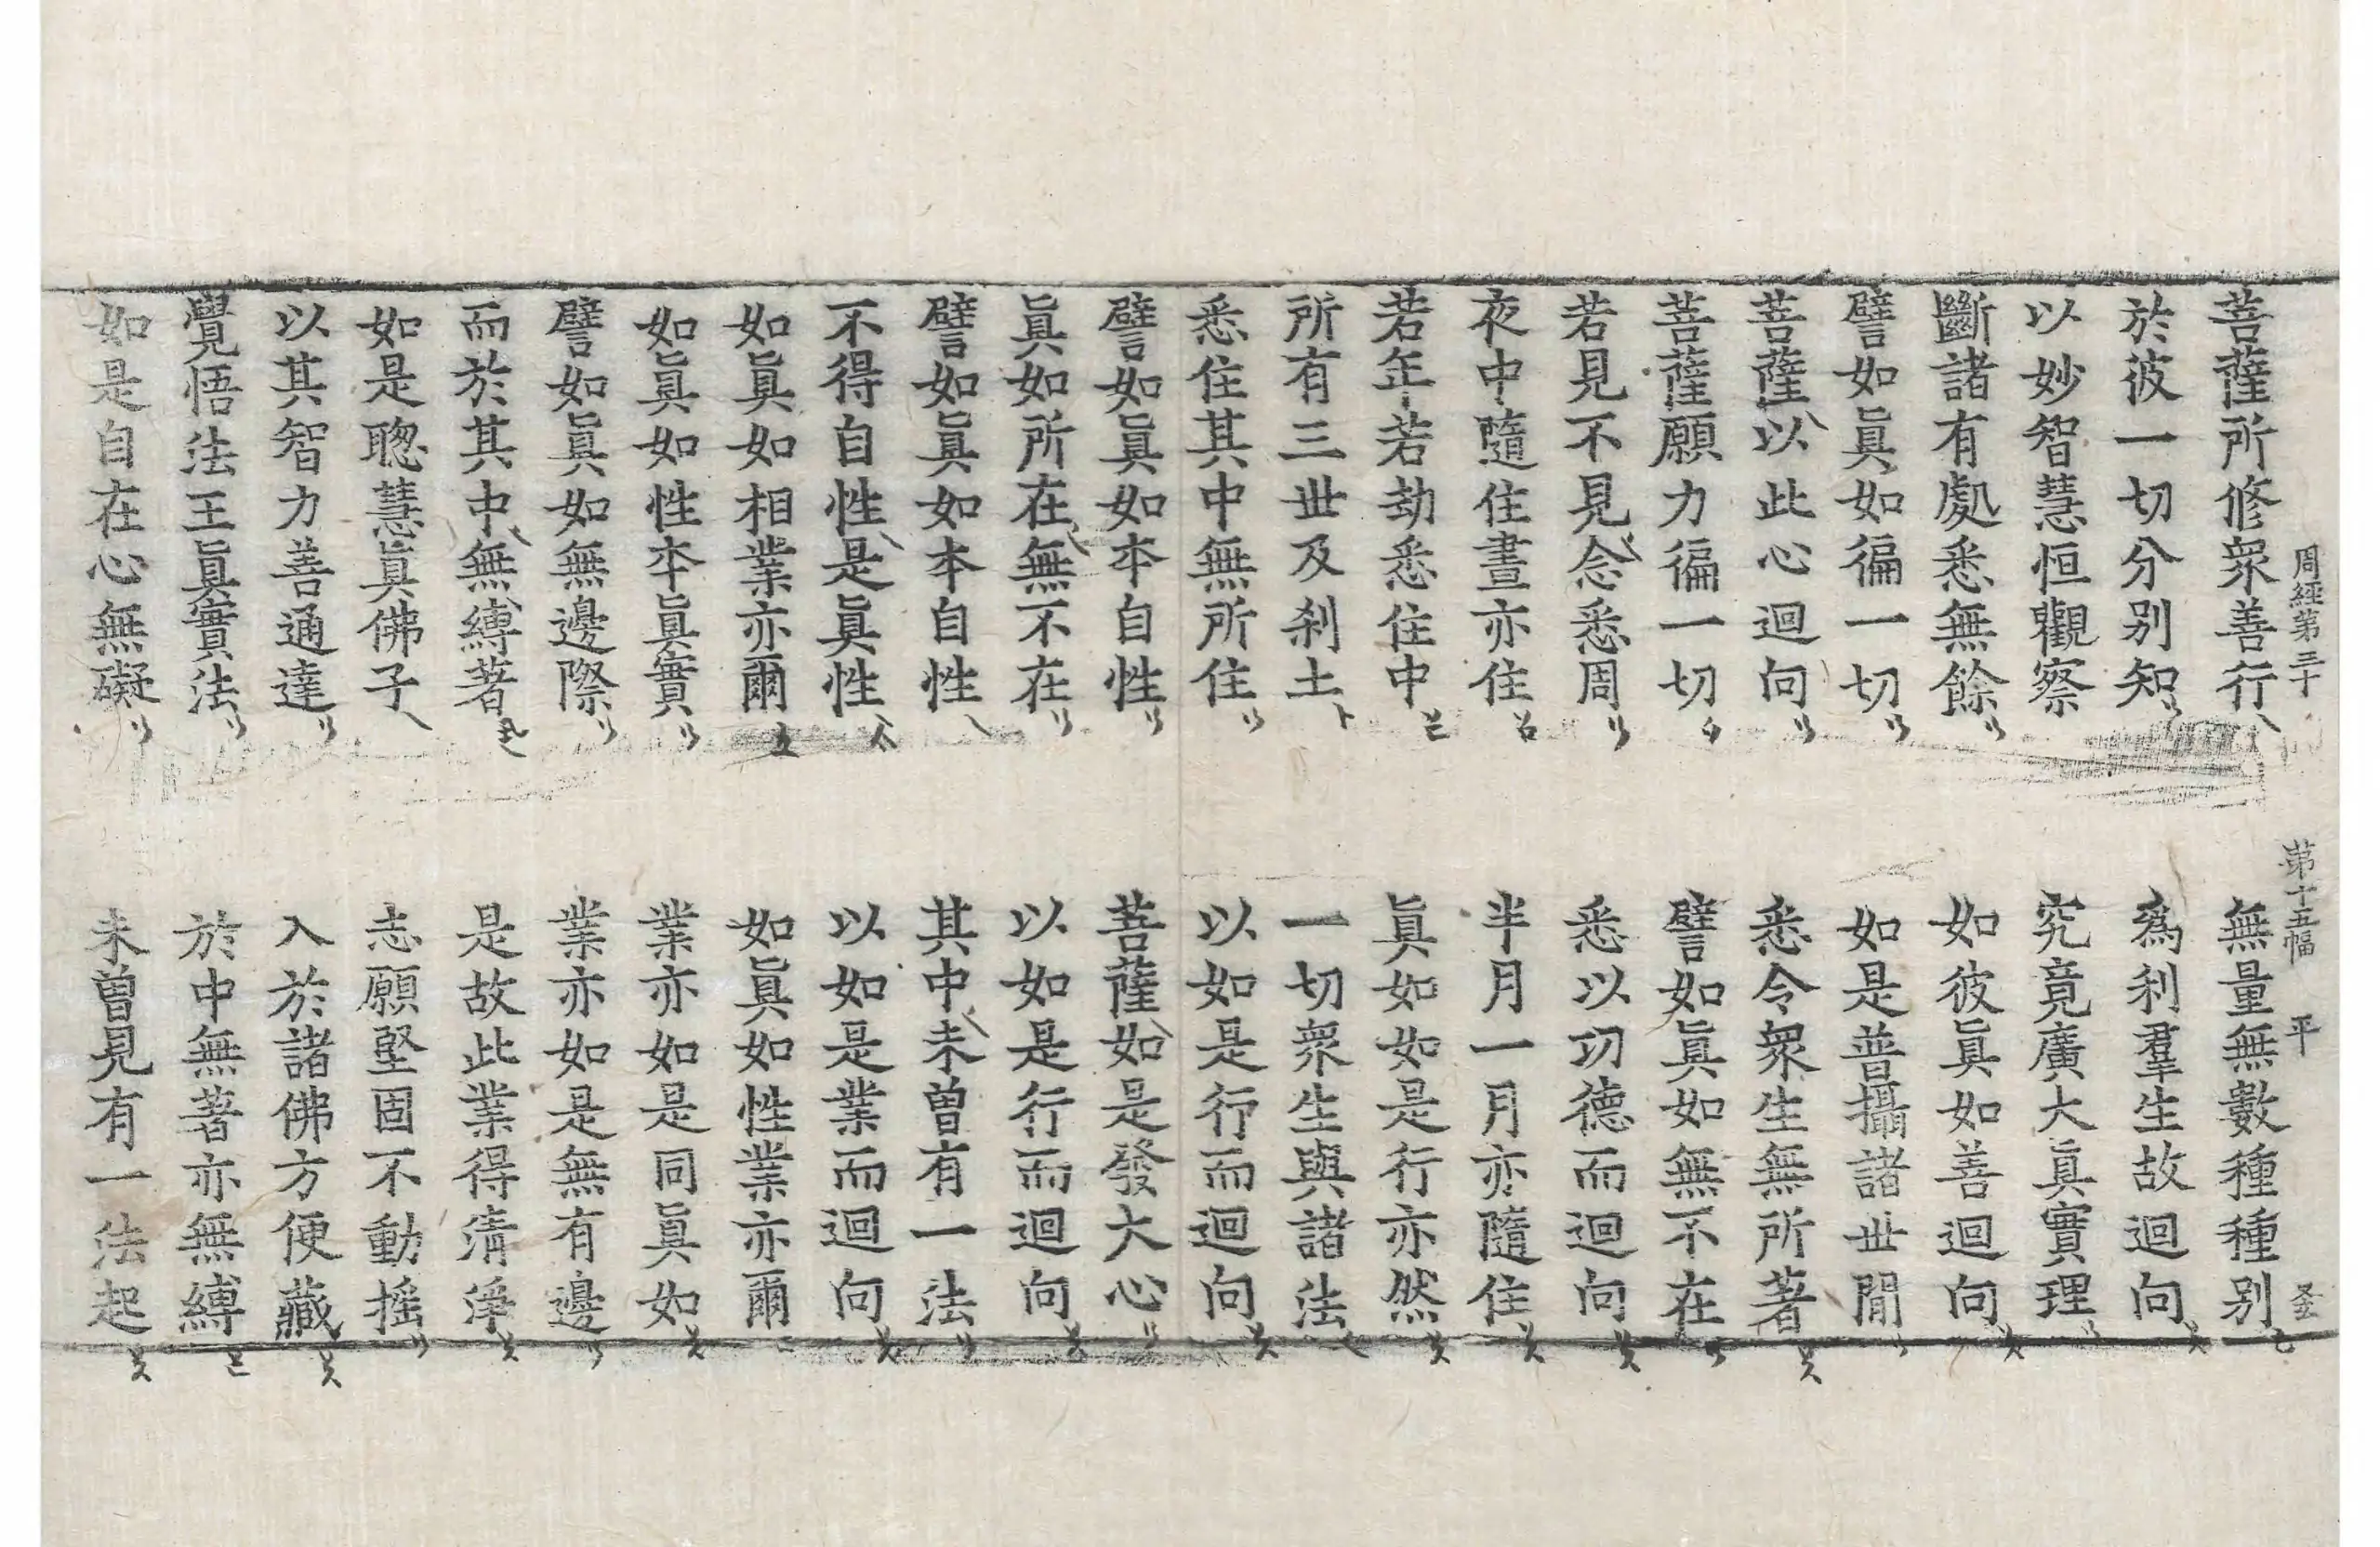 周經第三十 第十五幅 平
菩薩所修衆善行 無量無數種種别
於彼一切分别知 爲利羣生故迴向
以妙智慧恒觀察 究竟廣大眞實理
斷諸有處悉無餘 如彼眞如善迴向
譬如眞如徧一切 如是普攝諸世間
菩薩以此心迴向 悉令衆生無所著
菩薩願力徧一切 譬如眞如無不在
若見不見念悉周 悉以功德而迴向
夜中隨住晝亦住 半月一月亦隨住
若年若劫悉住中 眞如如是行亦然
所有三世及刹土 一切衆生與諸法
悉住其中無所住 以如是行而迴向
譬如眞如本自性 菩薩如是發大心
眞如所在無不在 以如是行而迴向
譬如眞如本自性 其中未曾有一法
不得自性是眞性 以如是業而迴向
如眞如相業亦爾 如眞如性業亦爾
如眞如性本眞實 業亦如是同眞如
譬如眞如無邊際 業亦如是無有邊
而於其中無縛著 是故此業得清淨
如是聰慧眞佛子 志願堅固不動搖
以其智力善通達 入於諸佛方便藏
覺悟法王眞實法 於中無著亦無縛
如是自在心無礙 未曾見有一法起